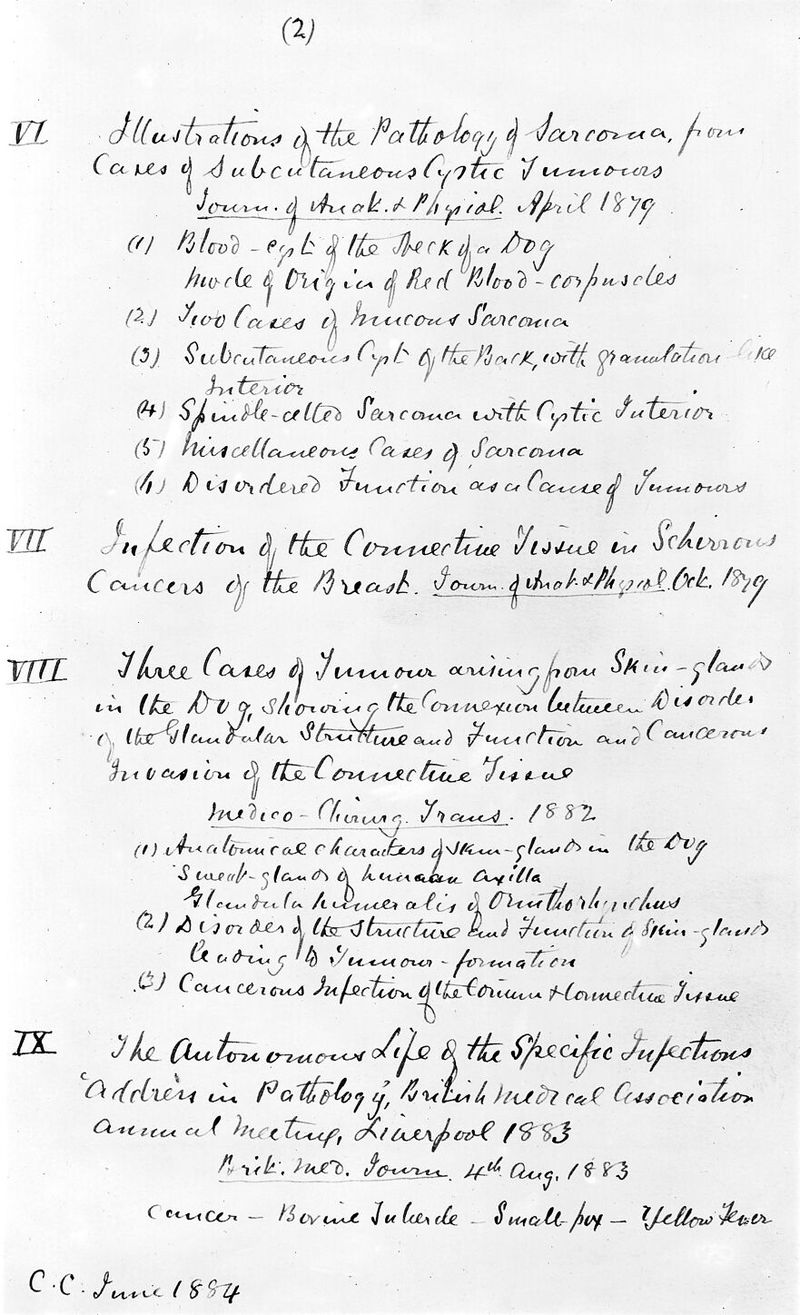 (2)
VI Illustrations of the Pathology of Sarcoma, from
Cases of Subcutaneous Cystic Tumours
Journ. of Anat. & Physiol. April 1879
(1) Blood-cyst of the Neck of a Dog
Mode of Origin of Red Blood-corpuscles
(2) Two Cases of Mucous Sarcoma
(3) Subcutaneous Cyst of the Back, with granulation-like
Interior
(4) Spindle-celled Sarcoma with Cystic Interior
(5) Miscellaneous Cases of Sarcoma
(6) Disordered Function as a Cause of Tumours
VII Infection of the Connective Tissue in Scirrous
Cancers of the Breast. Journ. of Anat. & Physiol. Oct. 1879
VIII Three Cases of Tumour arising from Skin-glands
in the Dog, showing the Connexion between Disorder
of the Glandular Structure and Function and Cancerous
Invasion of the Connective Tissue
Medico-Chirurg. Trans. 1882
(1) Anatomical characters of skin-glands in the Dog
Sweat-glands of human axilla
Glandula humeralis of Ornithorhynchus
(2) Disorder of the Structure and Function of Skin-glands
leading to Tumour-formation
(3) Cancerous Infection of the Corium & Connective Tissue
IX The Autonomous Life of the Specific Infections
'Address in Pathology', British Medical Association
Annual Meeting, Liverpool 1883
Brit. Med. Journ. 4th Aug. 1883
Cancer - Bovine Tubercle - Small-pox - Yellow Fever
C.C. June 1884